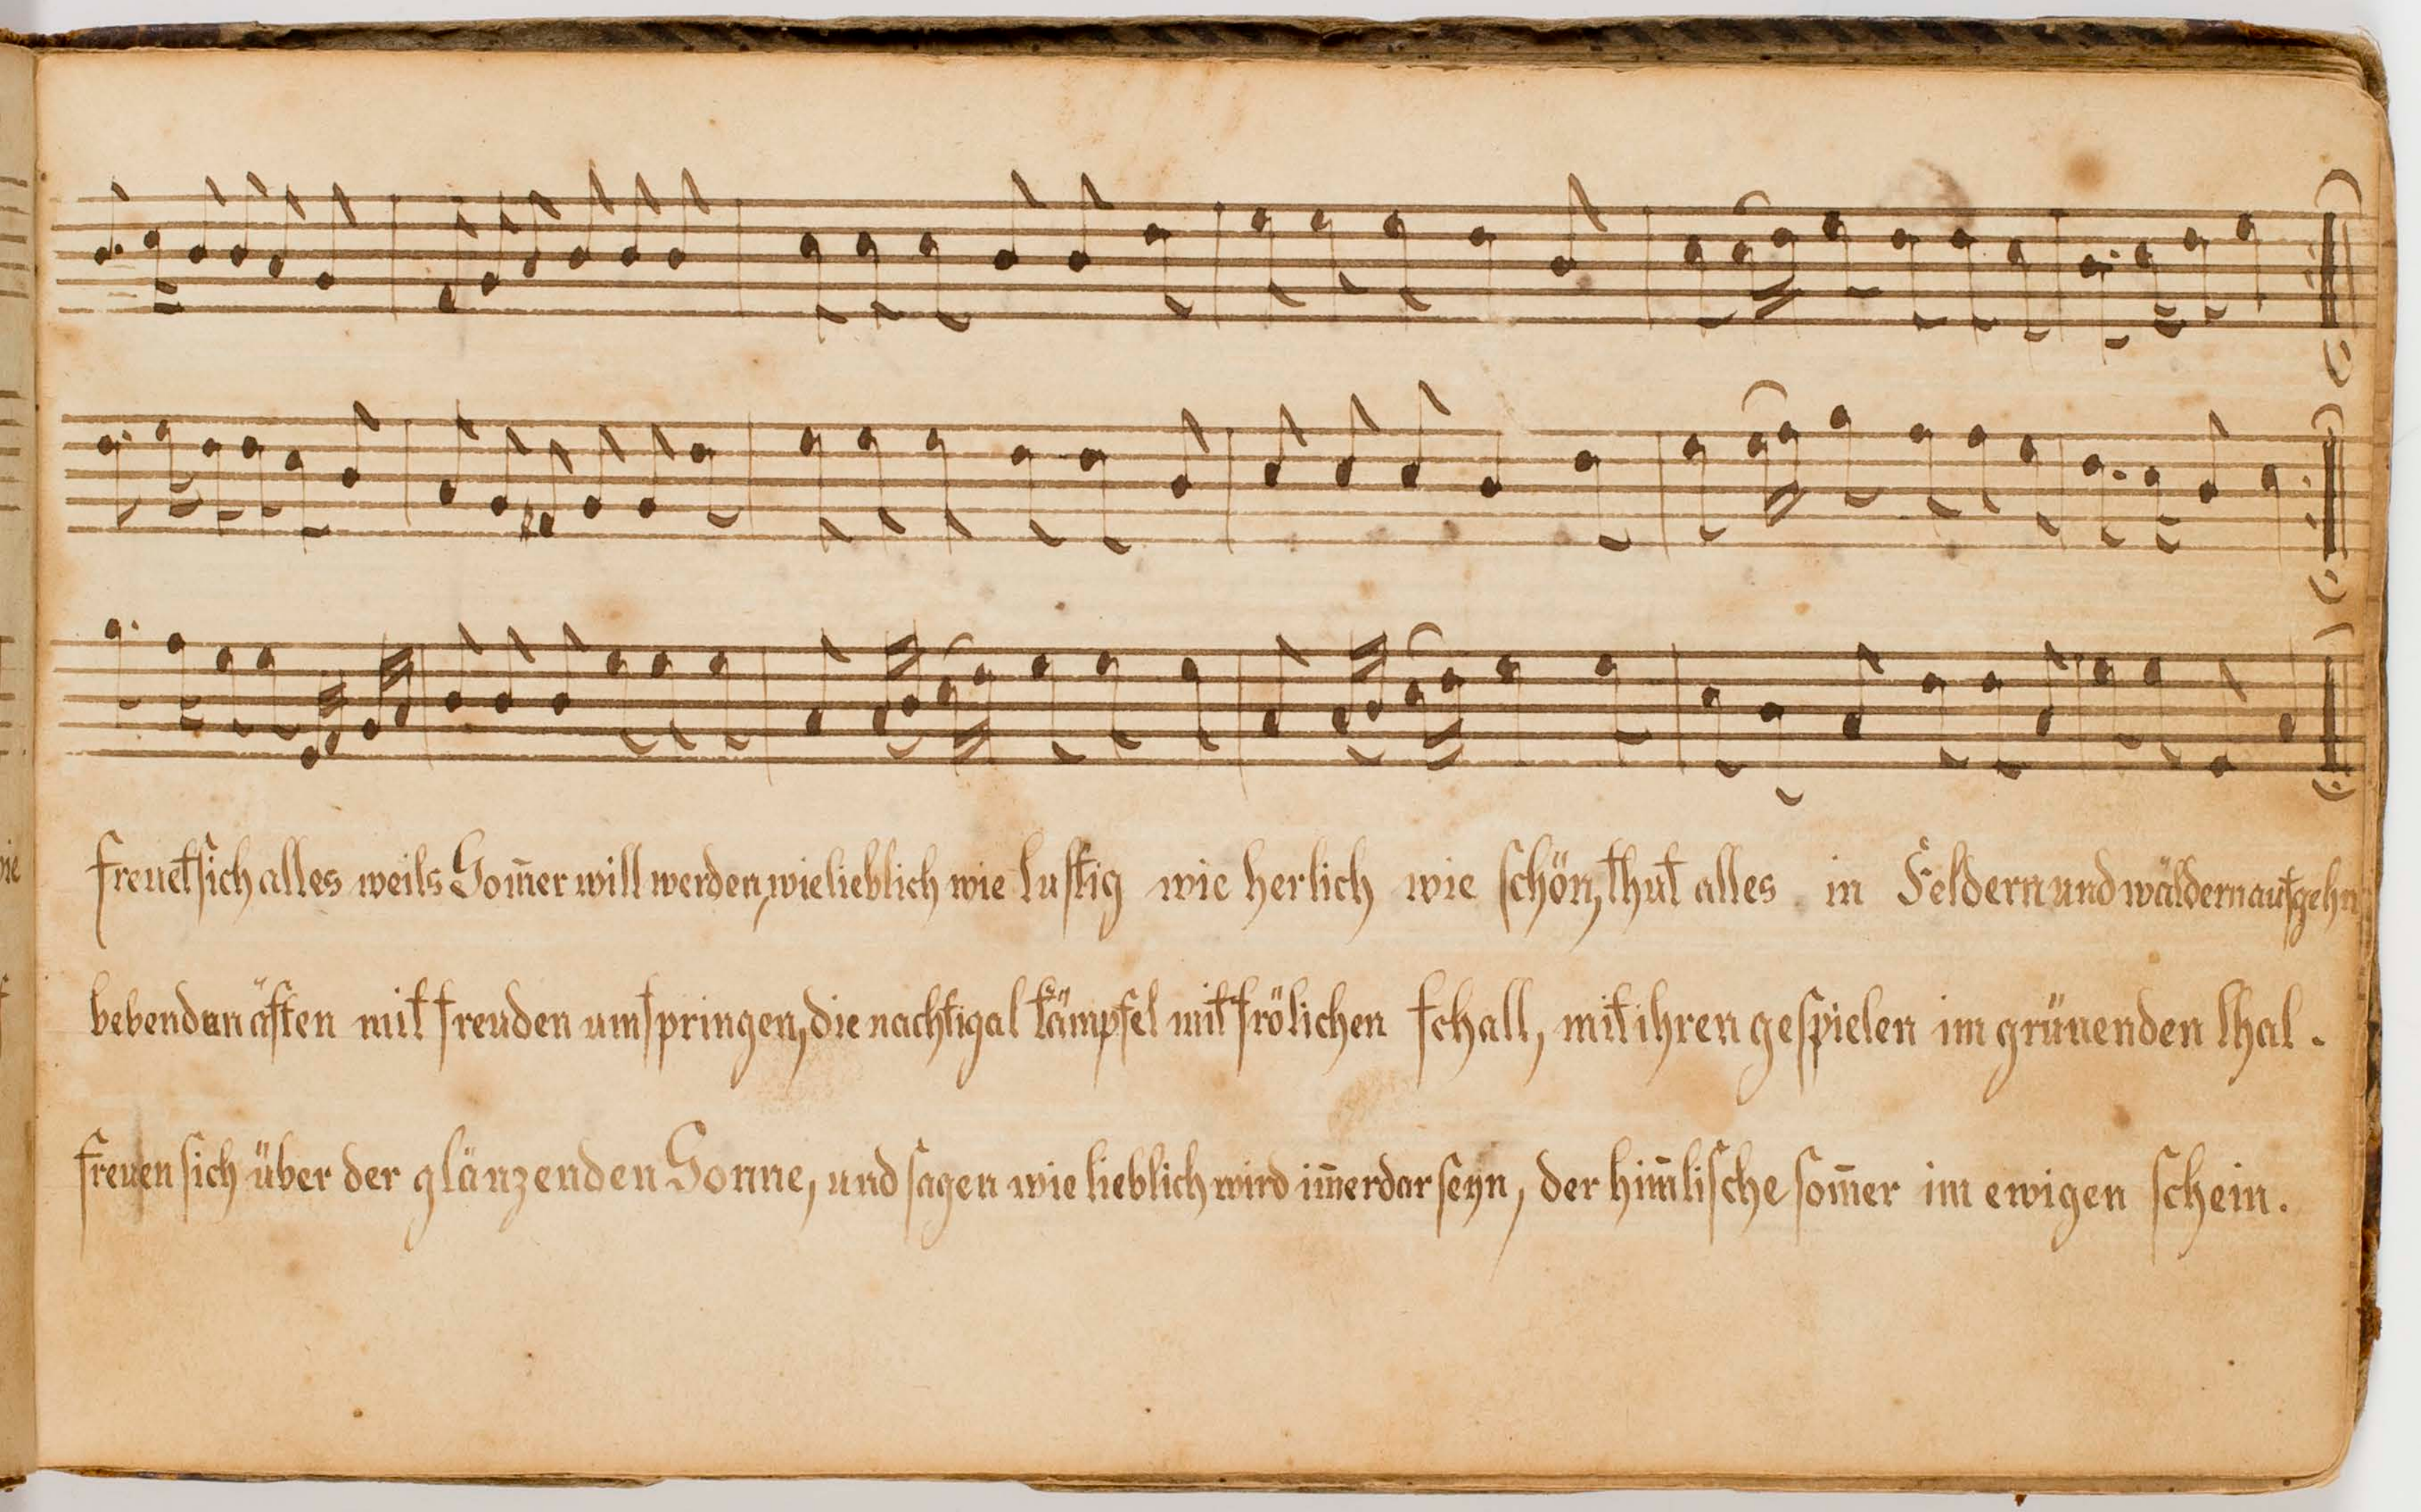 freuet sich alles weils Som̄er will werden, wie lieblich wie lustig wie herlich wie schön, thut alles in Feldern und wäldern aufgehn
bebend an ästen mit freuden umspringen, die nachtigal kämpfel mit frölichen schall, mit ihren gespielen im grünenden thal.
freuen sich über der glänzenden Sonne, und sagen wie lieblich wird im̄erdar seyn, der him̄lische som̄er im ewigen schein.